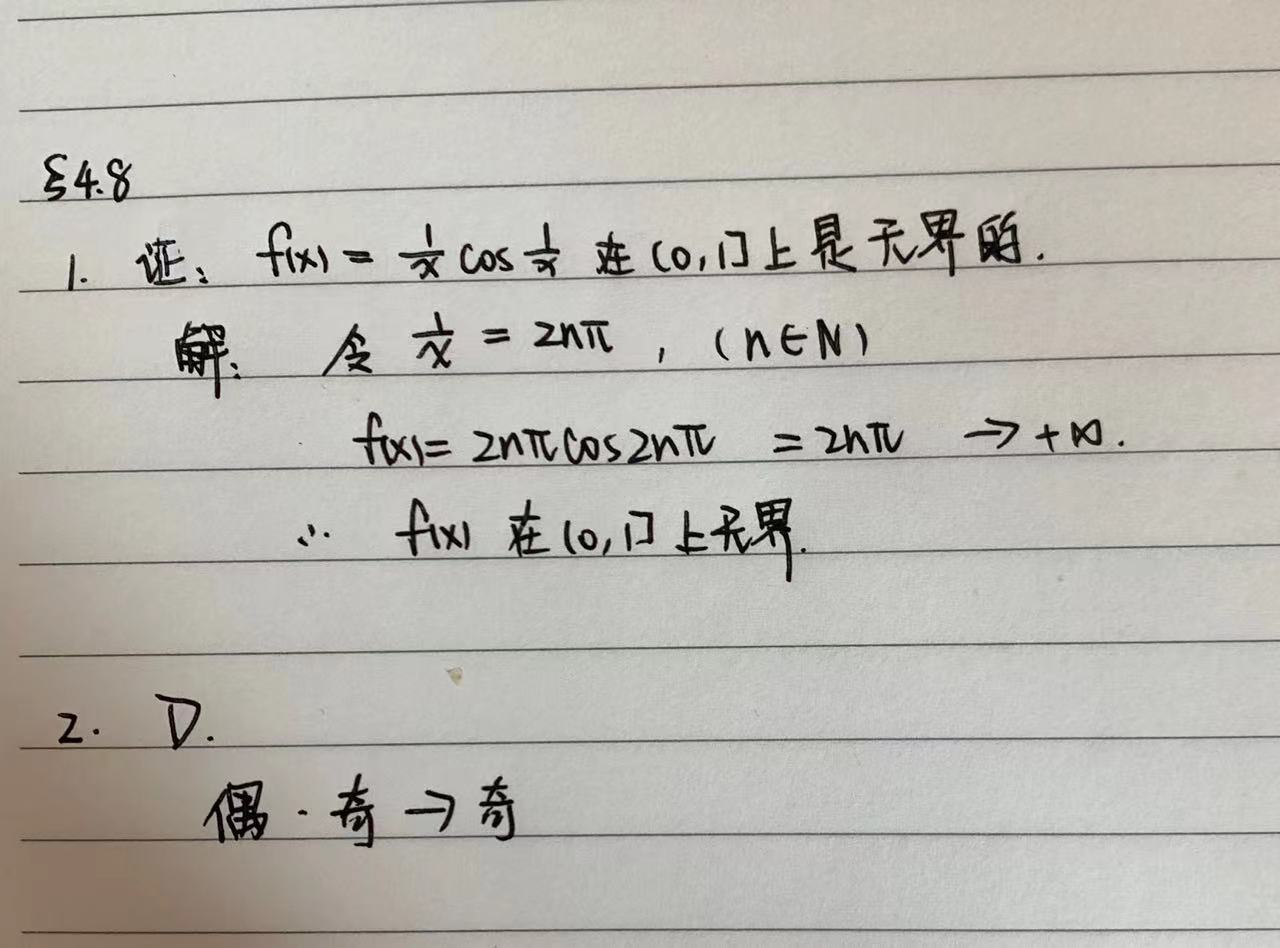 §4.8
1. 证: f(x) = 1/x cos 1/x 在 (0,1]上是无界的.
解: 令 1/x = 2nπ , (n∈N)
f(x) = 2nπcos2nπ = 2nπ → +∞.
∴ f(x) 在 (0,1] 上无界.
2. D.
偶·奇→奇